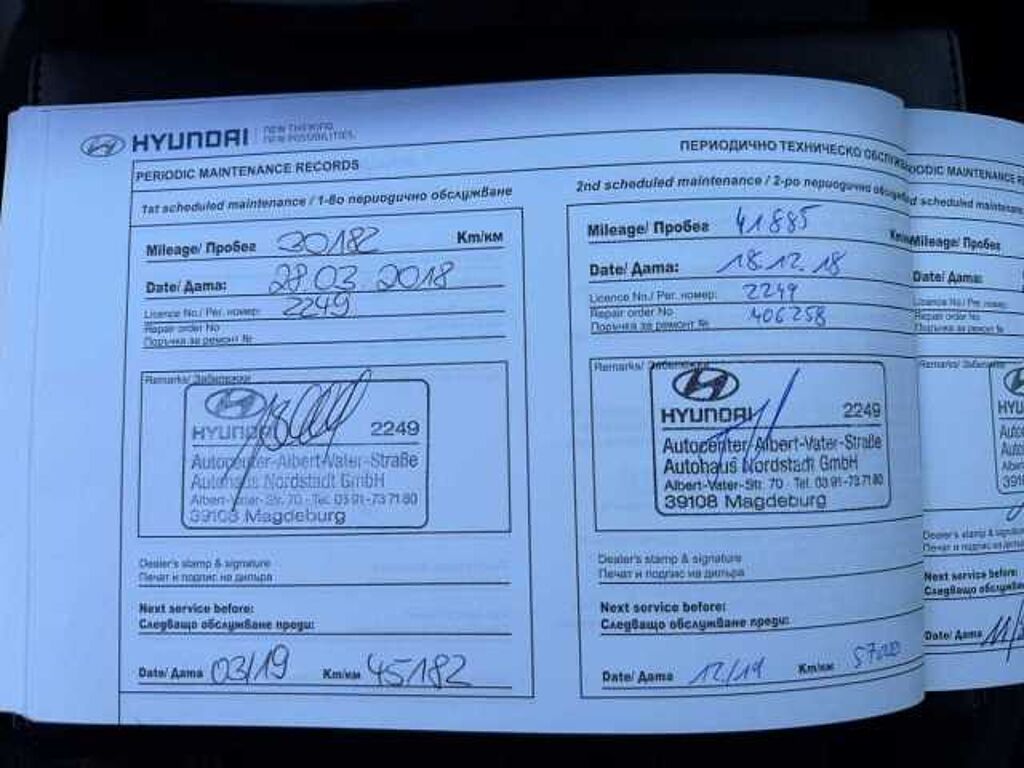 HYUNDAI NEW THINKING. NEW POSSIBILITIES.
PERIODIC MAINTENANCE RECORDS
ПЕРИОДИЧНО ТЕХНИЧЕСКО
1st scheduled maintenance / 1-во периодично обслужване
Mileage/ Пробег Km/км
Date/ Дата: 28.03.2018
Licence No./ Рег. номер: 2249
Repair order No
Поръчка за ремонт №
Remarks/ Забележки
HYUNDAI 2249
Autocenter-Albert-Vater-Straße
Autohaus Nordstadt GmbH
Albert-Vater-Str. 70 · Tel. 03 91-73 71 80
39108 Magdeburg
Dealer's stamp & signature
Печат и подпис на дилъра
Next service before:
Следващо обслужване преди:
Date/ Дата 03/19 Km/км 45182
2nd scheduled maintenance / 2-ро периодично
Mileage/ Пробег 41885
Date/ Дата: 18.12.18
Licence No./ Рег. номер: 2249
Repair order No 406258
Поръчка за ремонт №
Remarks/ Забележки
HYUNDAI 2249
Autocenter-Albert-Vater-Straße
Autohaus Nordstadt GmbH
Albert-Vater-Str. 70 · Tel. 03 91-73 71 80
39108 Magdeburg
Dealer's stamp & signature
Печат и подпис на дилъра
Next service before:
Следващо обслужване преди:
Date/ Дата 12/19 Km/км
MAINTENANCE
scheduled maintenance
Mileage/ Пробег
Date/ Дата:
Licence No./ Рег. номер:
Repair order No
Поръчка за ремонт №
Remarks/ Забележки
Dealer's stamp & signature
Печат и подпис на дилъра
Next service before:
Следващо обслужване
Date/ Дата